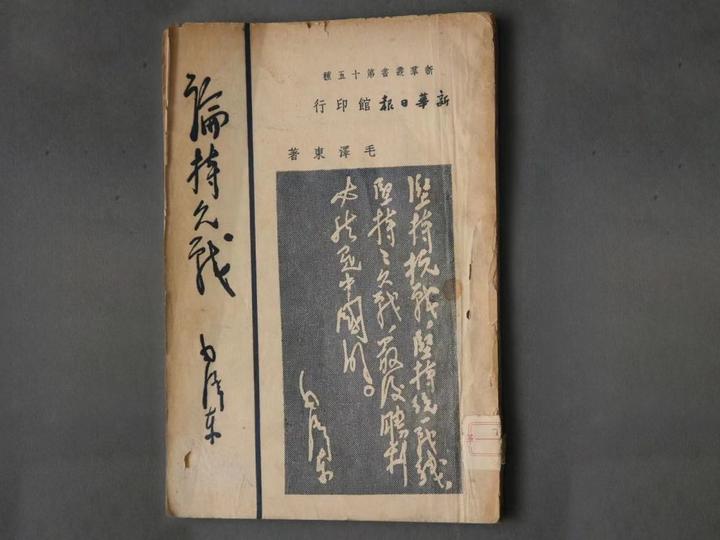 新羣叢書第十五種
新華日報館印行
毛澤東著
堅持抗戰,堅持統一戰線,
堅持〻久戰,最後勝利
必然是中國的。
毛澤東
論持久戰
毛澤東